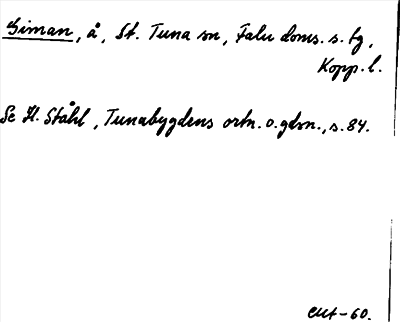 Siman, å, St. Tuna sn, Falu doms. s. tg,
Kopp. l.
Se H. Ståhl, Tunabygdens ortn. o. gdsn., s. 84.
-60.